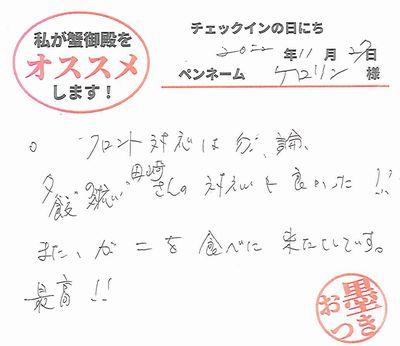 私が蟹御殿を
オススメ
します!
チェックインの日にち
2022年11月27日
ペンネーム ケロリン 様
○ フロント対応は勿論、
夕餉の 田崎さんの対応も良かった!!
また、ガニを食べに来たいです。
最高!!
お墨つき